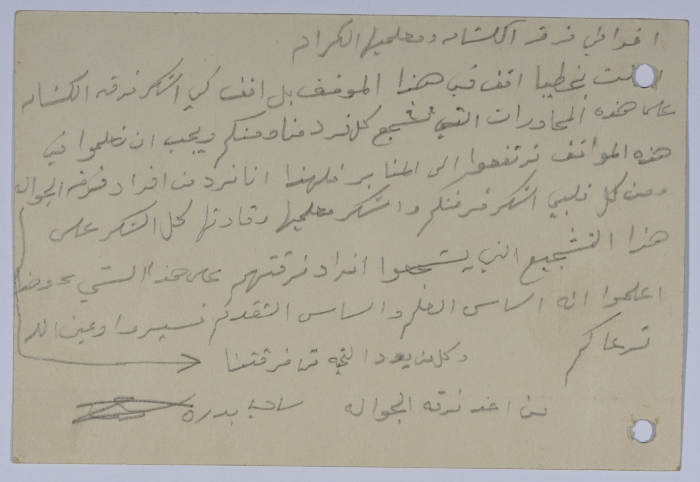 اخواني فرقة الكشافه ومعلميها الكرام
لست بخطيبا اقف في هذا الموقف بل اقف كي اشكر فرقه الكشافه
على هذه المحاورات التي تشجع كل فرد منا ومنكم ويجب ان تعلموا في
هذه المواقف ترتفعوا الى المنابر فلهذا انا فرد من افراد فرقة الجواله
ومن كل قلبي اشكر فرقتكم واشكر معلميها وقادتها كل الشكر على
هذا التشجيع الذي يشجعوا افراد فرقتهم على هذا الشي
اعلموا انه اساس العلم واساس التقدم فسيروا وعين الله
ترعاكم
وكل من يود من فرقتنا
من احد فرقه الجواله بدره